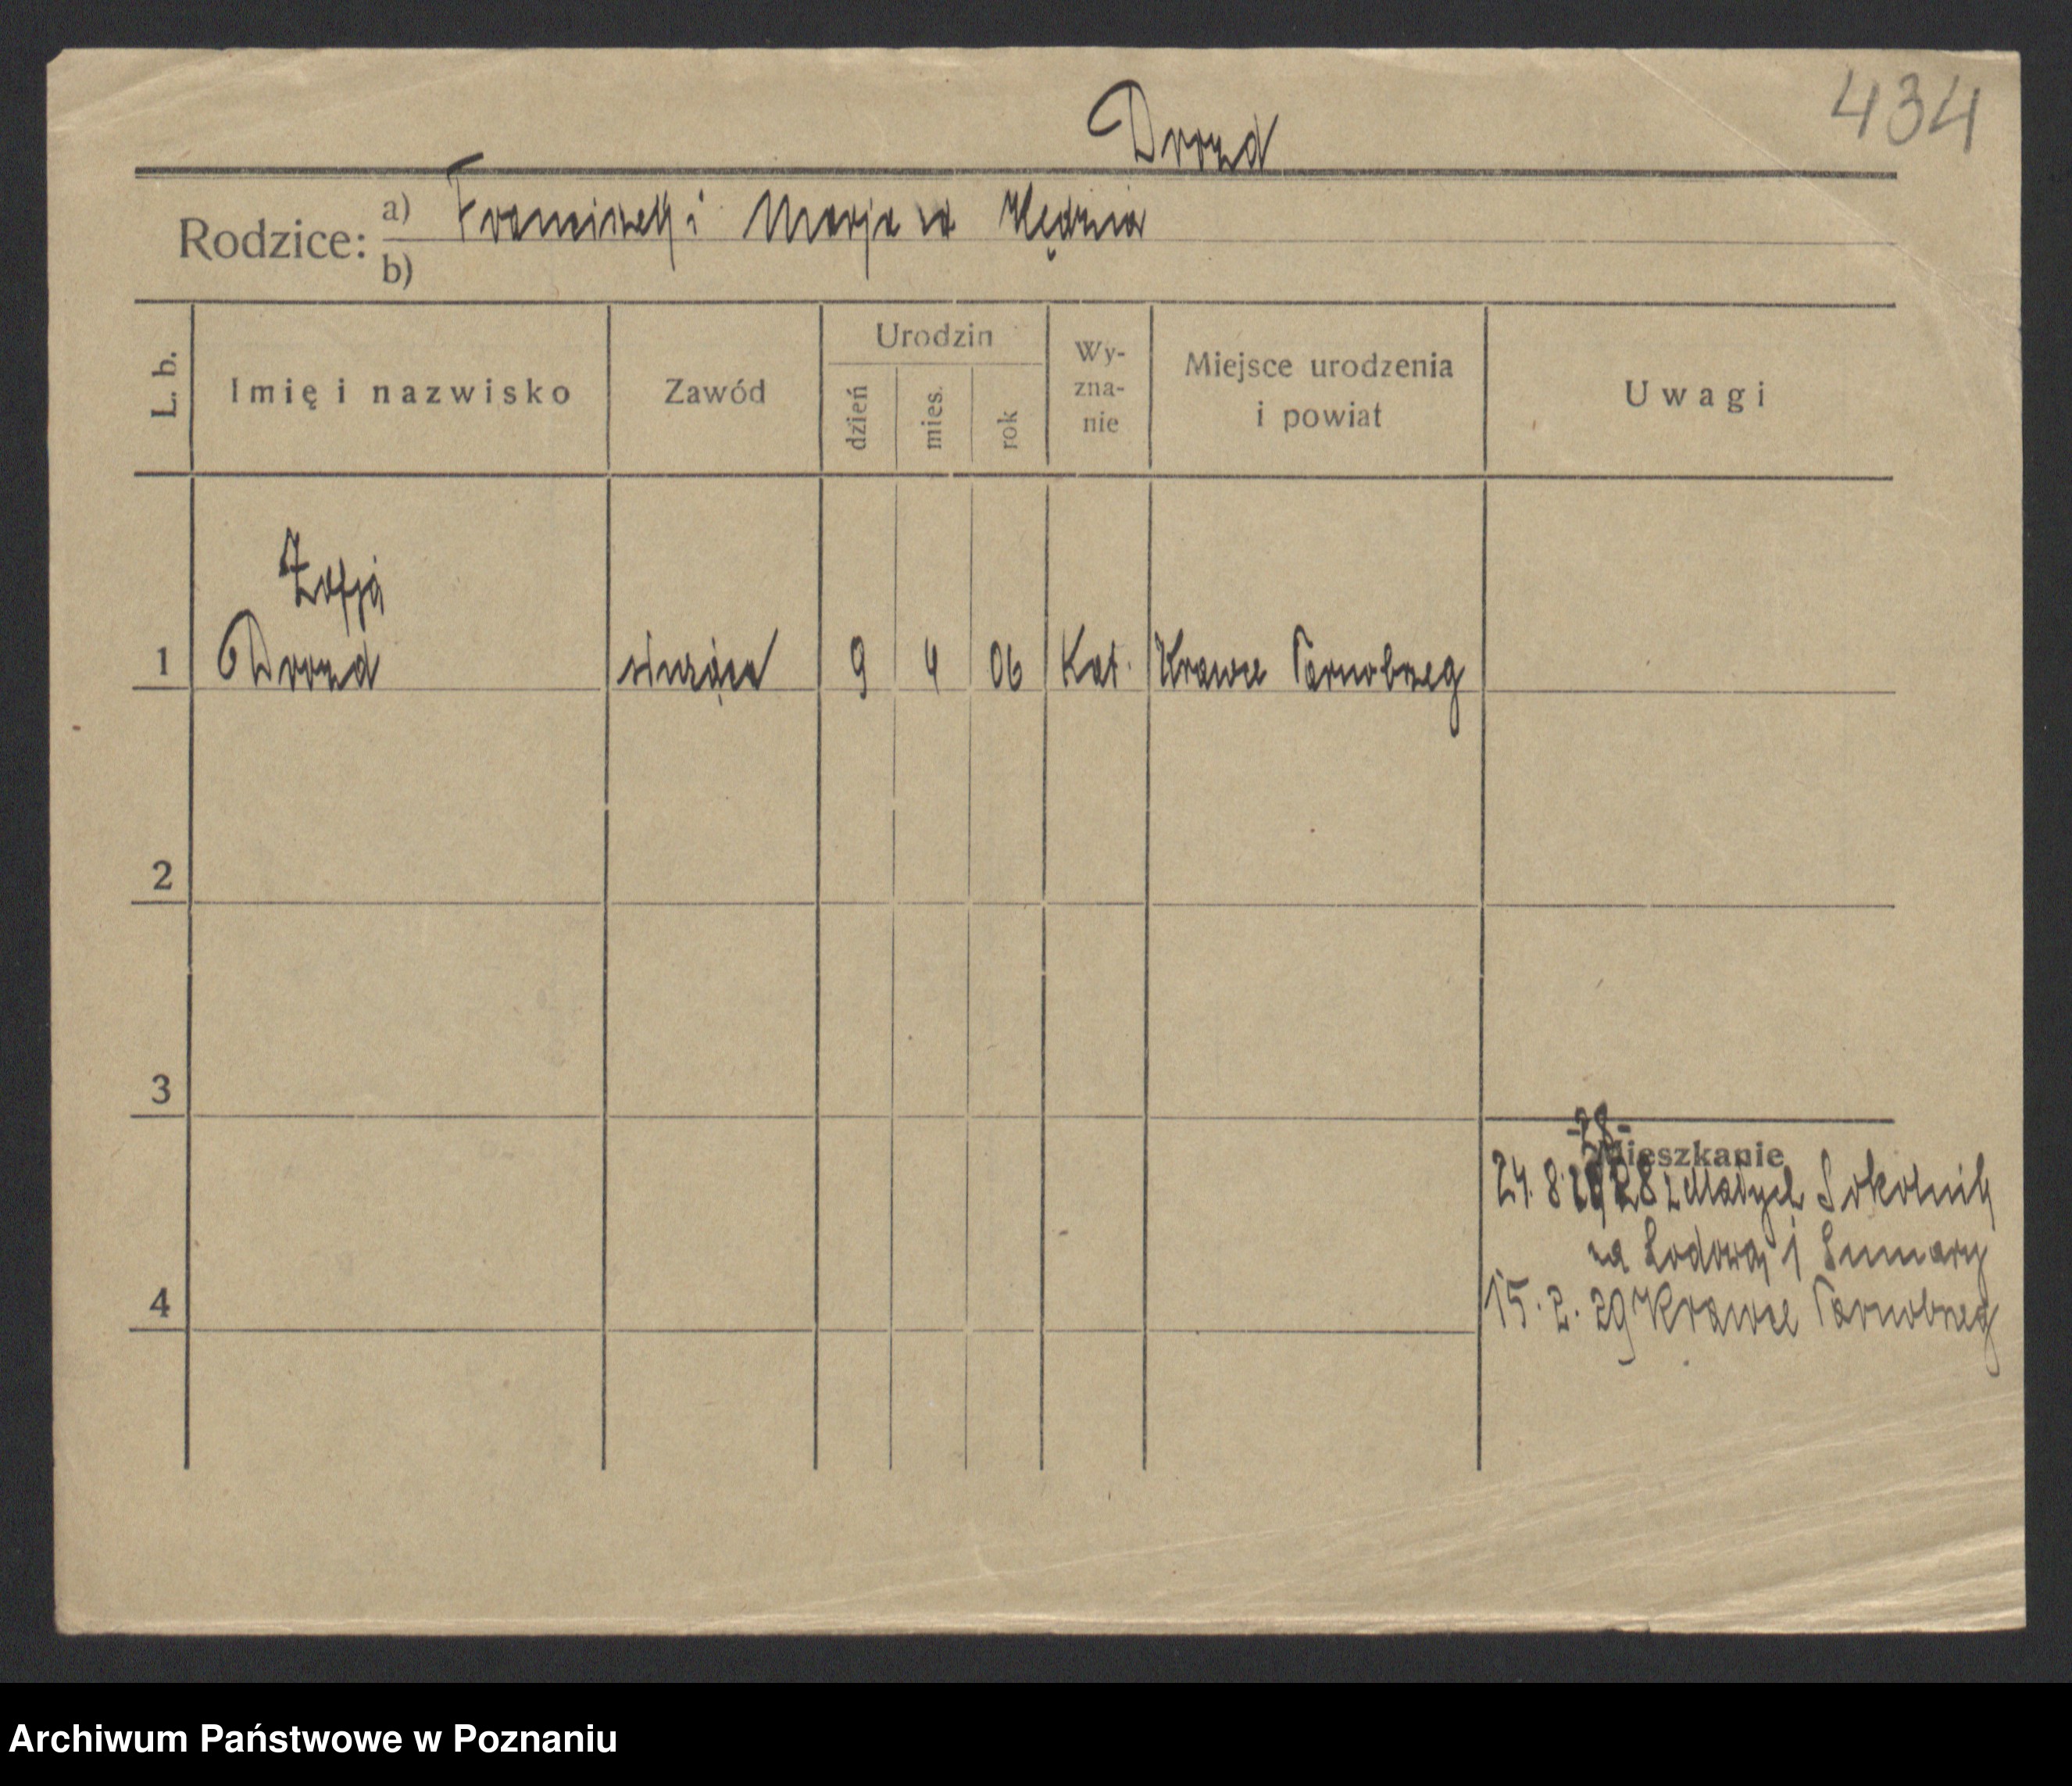 434
Drozd
Rodzice: a) Franciszek i Marja z d Kędzia
b)
L. b. Imię i nazwisko Zawód Urodzin dzień mies. rok Wyzna-nie Miejsce urodzenia i powiat Uwagi
Zofja
1 Drozd służąca 9 4 06 Kat. Krawce Tarnobrzeg
2
3
-28-
Mieszkanie
24. 8. 1928 z Małych Sokolnik
na Lodową 1
4
15. 2. 29 Krawce Tarnobrzeg
Archiwum Państwowe w Poznaniu